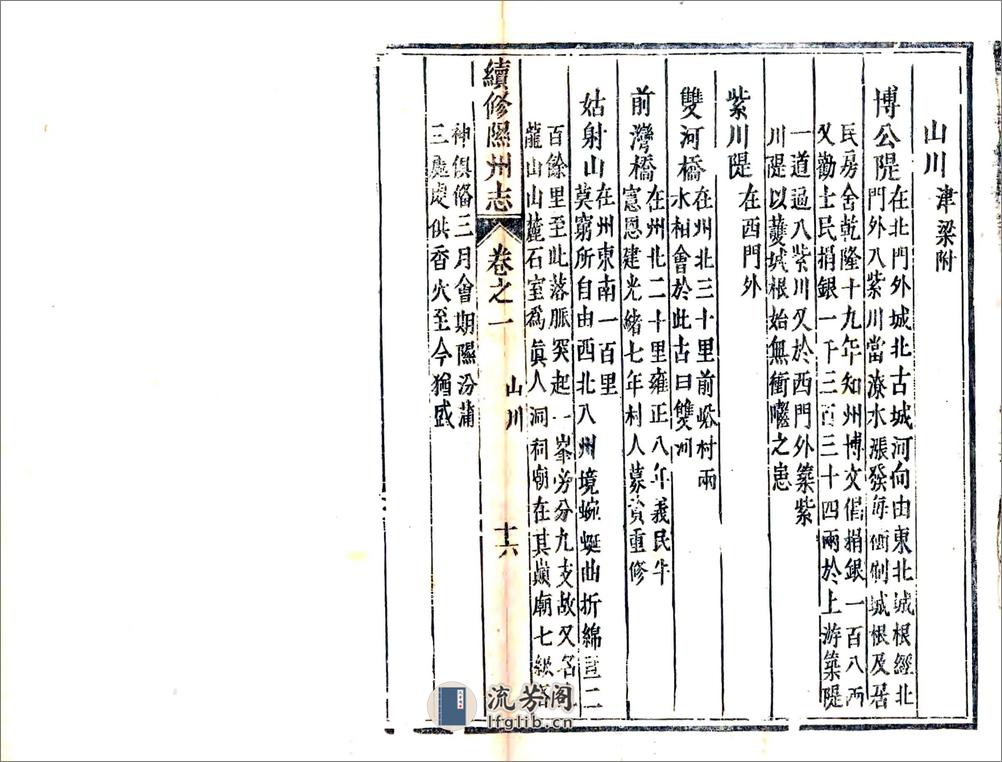 山川 津梁附
博公隄 在北門外城北古城河向由東北城根經北
門外入紫川當潦水漲發每衝刷城根及居
民房舍乾隆十九年知州博文倡捐銀一百八兩
又勸士民捐銀一千三百三十四兩於上游築隄
一道逼入紫川又於西門外築紫
川隄以護城根始無衝囓之患
紫川隄 在西門外
雙河橋 在州北三十里前峪村兩
水相會於此古曰雙河
前灣橋 在州北二十里雍正八年義民牛
憲恩建光緒七年村人募貲重修
姑射山 在州東南一百里
莫窮所自由西北入州境蜿蜒曲折綿亘二
百餘里至此落脈突起一峯旁分九支故又名九
龍山山麓石室爲眞人洞祠廟在其巔廟七級
續修隰州志 卷之一 山川 十六
神俱備三月會期隰汾蒲
三處處供香火至今猶盛
流芳阁
lfglib.cn